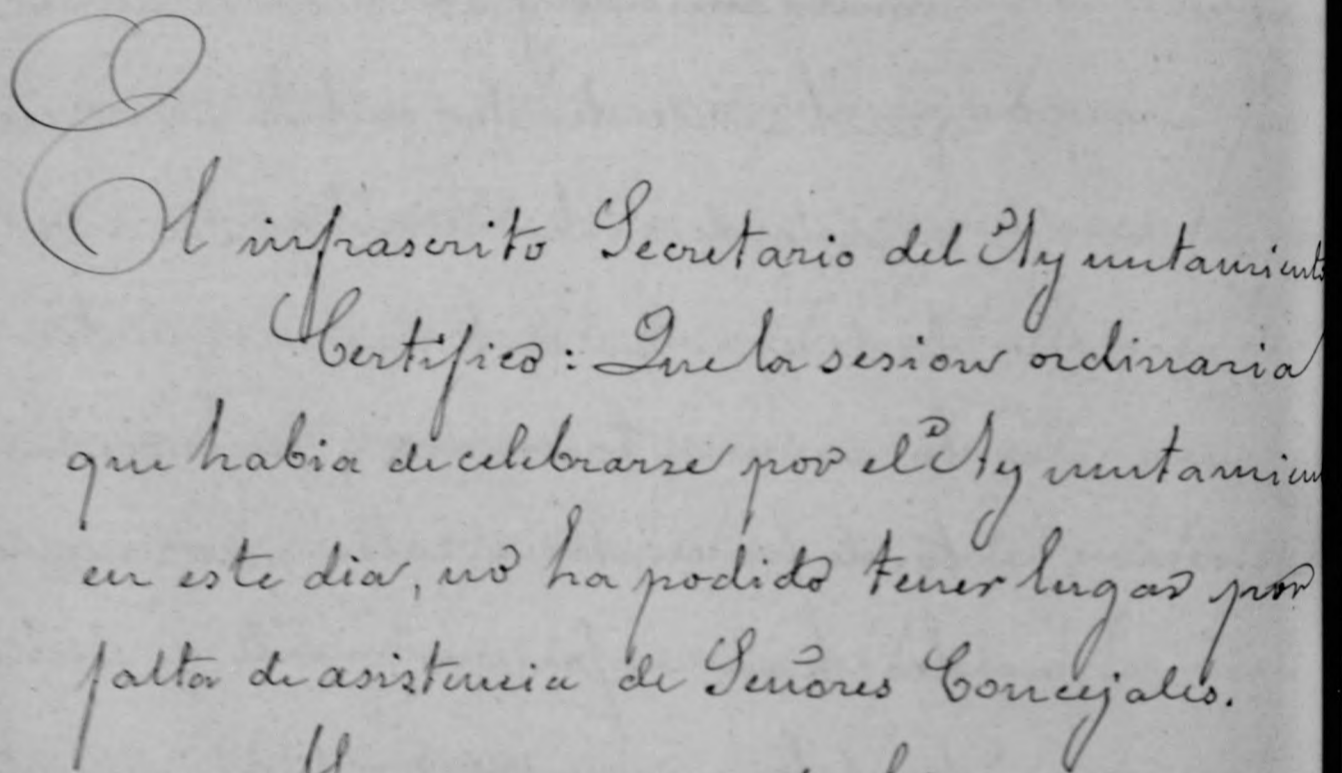 El infrascrito Secretario del Ayuntamiento
Certifico: Que la sesion ordinaria
que habia de celebrarse por el Ayuntamien
en este dia, no ha podido tener lugar por
falta de asistencia de Señores Concejales.